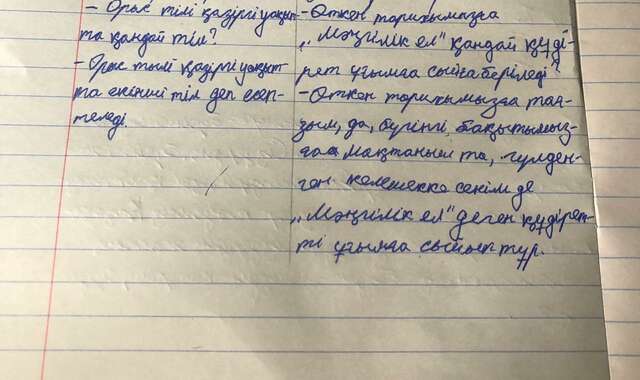 - Орыс тілі қазіргі уақыт-
та қандай тіл?
- Орыс тылі қазіргі уақыт-
та екінші тіл деп есеп-
теледі.
- Өткен тарихымызға
„Мәңгілік ел" қандай құді-
рет ұғымға сыйға беріледі?
- Өткен тарихымызға тағ-
зым, да, бүгінгі бақытымыз-
ғаа мақтаныш та, гүлден-
ген келешекке сенім де
„Мәңгілік ел" деген құдірет-
ті ұғымға сыйып тұр.